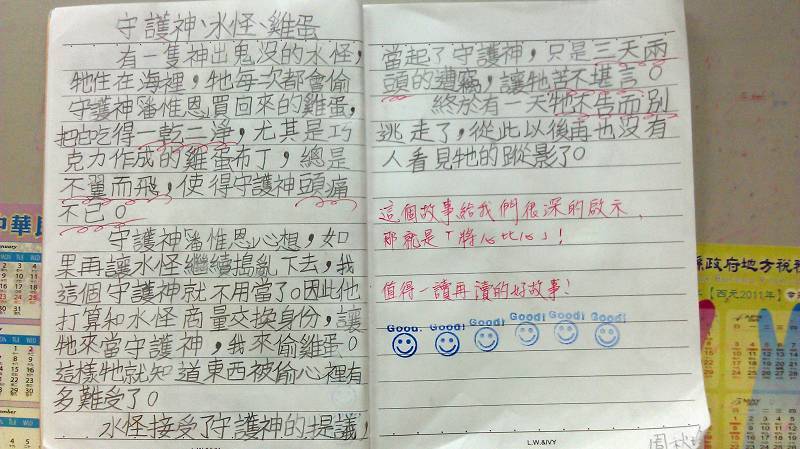 守護神、水怪、雞蛋
有一隻神出鬼沒的水怪，
牠住在海裡，牠每次都會偷
守護神「潘惟恩」買回來的雞蛋，
把它吃得一乾二淨，尤其是巧
克力作成的雞蛋布丁，總是
不翼而飛，使得守護神頭痛
不已。
守護神「潘惟恩」心想，如
果再讓水怪繼續搗亂下去，我
這個守護神就不用當了。因此他
打算和水怪商量交換身份，讓
牠來當守護神，我來偷雞蛋。
這樣牠就知道東西被偷心裡有
多難受了。
水怪接受了守護神的提議，
當起了守護神，只是三天兩
頭的遭竊，讓牠苦不堪言。
終於有一天牠不告而別
逃走了，從此以後再也沒有
人看見牠的蹤影了。
這個故事給我們很深的啟示，
那就是「將心比心」！
值得一讀再讀的好故事！
Good! Good! Good! Good! Good! Good!
L.W.&IVY
中華民
縣政府地方稅務
【西元2011年】